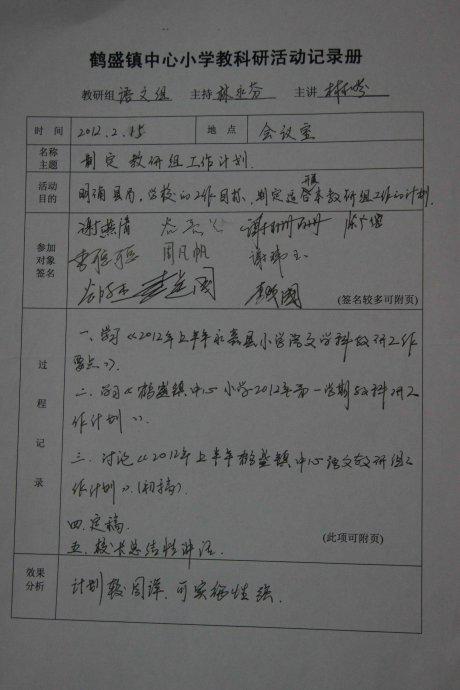 鹤盛镇中心小学教科研活动记录册
教研组 语文组 主持 林永芬 主讲
时 间 2012.2.15 地 点 会议室
名称 主题 制定教研组工作计划.
活动 目的 明确县局、学校的工作目标、制定适合开展本教研组工作的计划.
参加 对象 签名
谢燕清
李聪聪 周凡帆 谢玮玉
(签名较多可附页)
过程记录
一、学习《2012年上半年永嘉县小学语文学科教研工作
要点》.
二、学习《鹤盛镇中心小学2012年第一学期教科研工
作计划》.
三、讨论《2012年上半年鹤盛镇中心语文教研组工
作计划》.(初稿).
四、定稿.
五、校长总结性讲话. (此项可附页)
效果 分析 计划较周详,可实施性强.